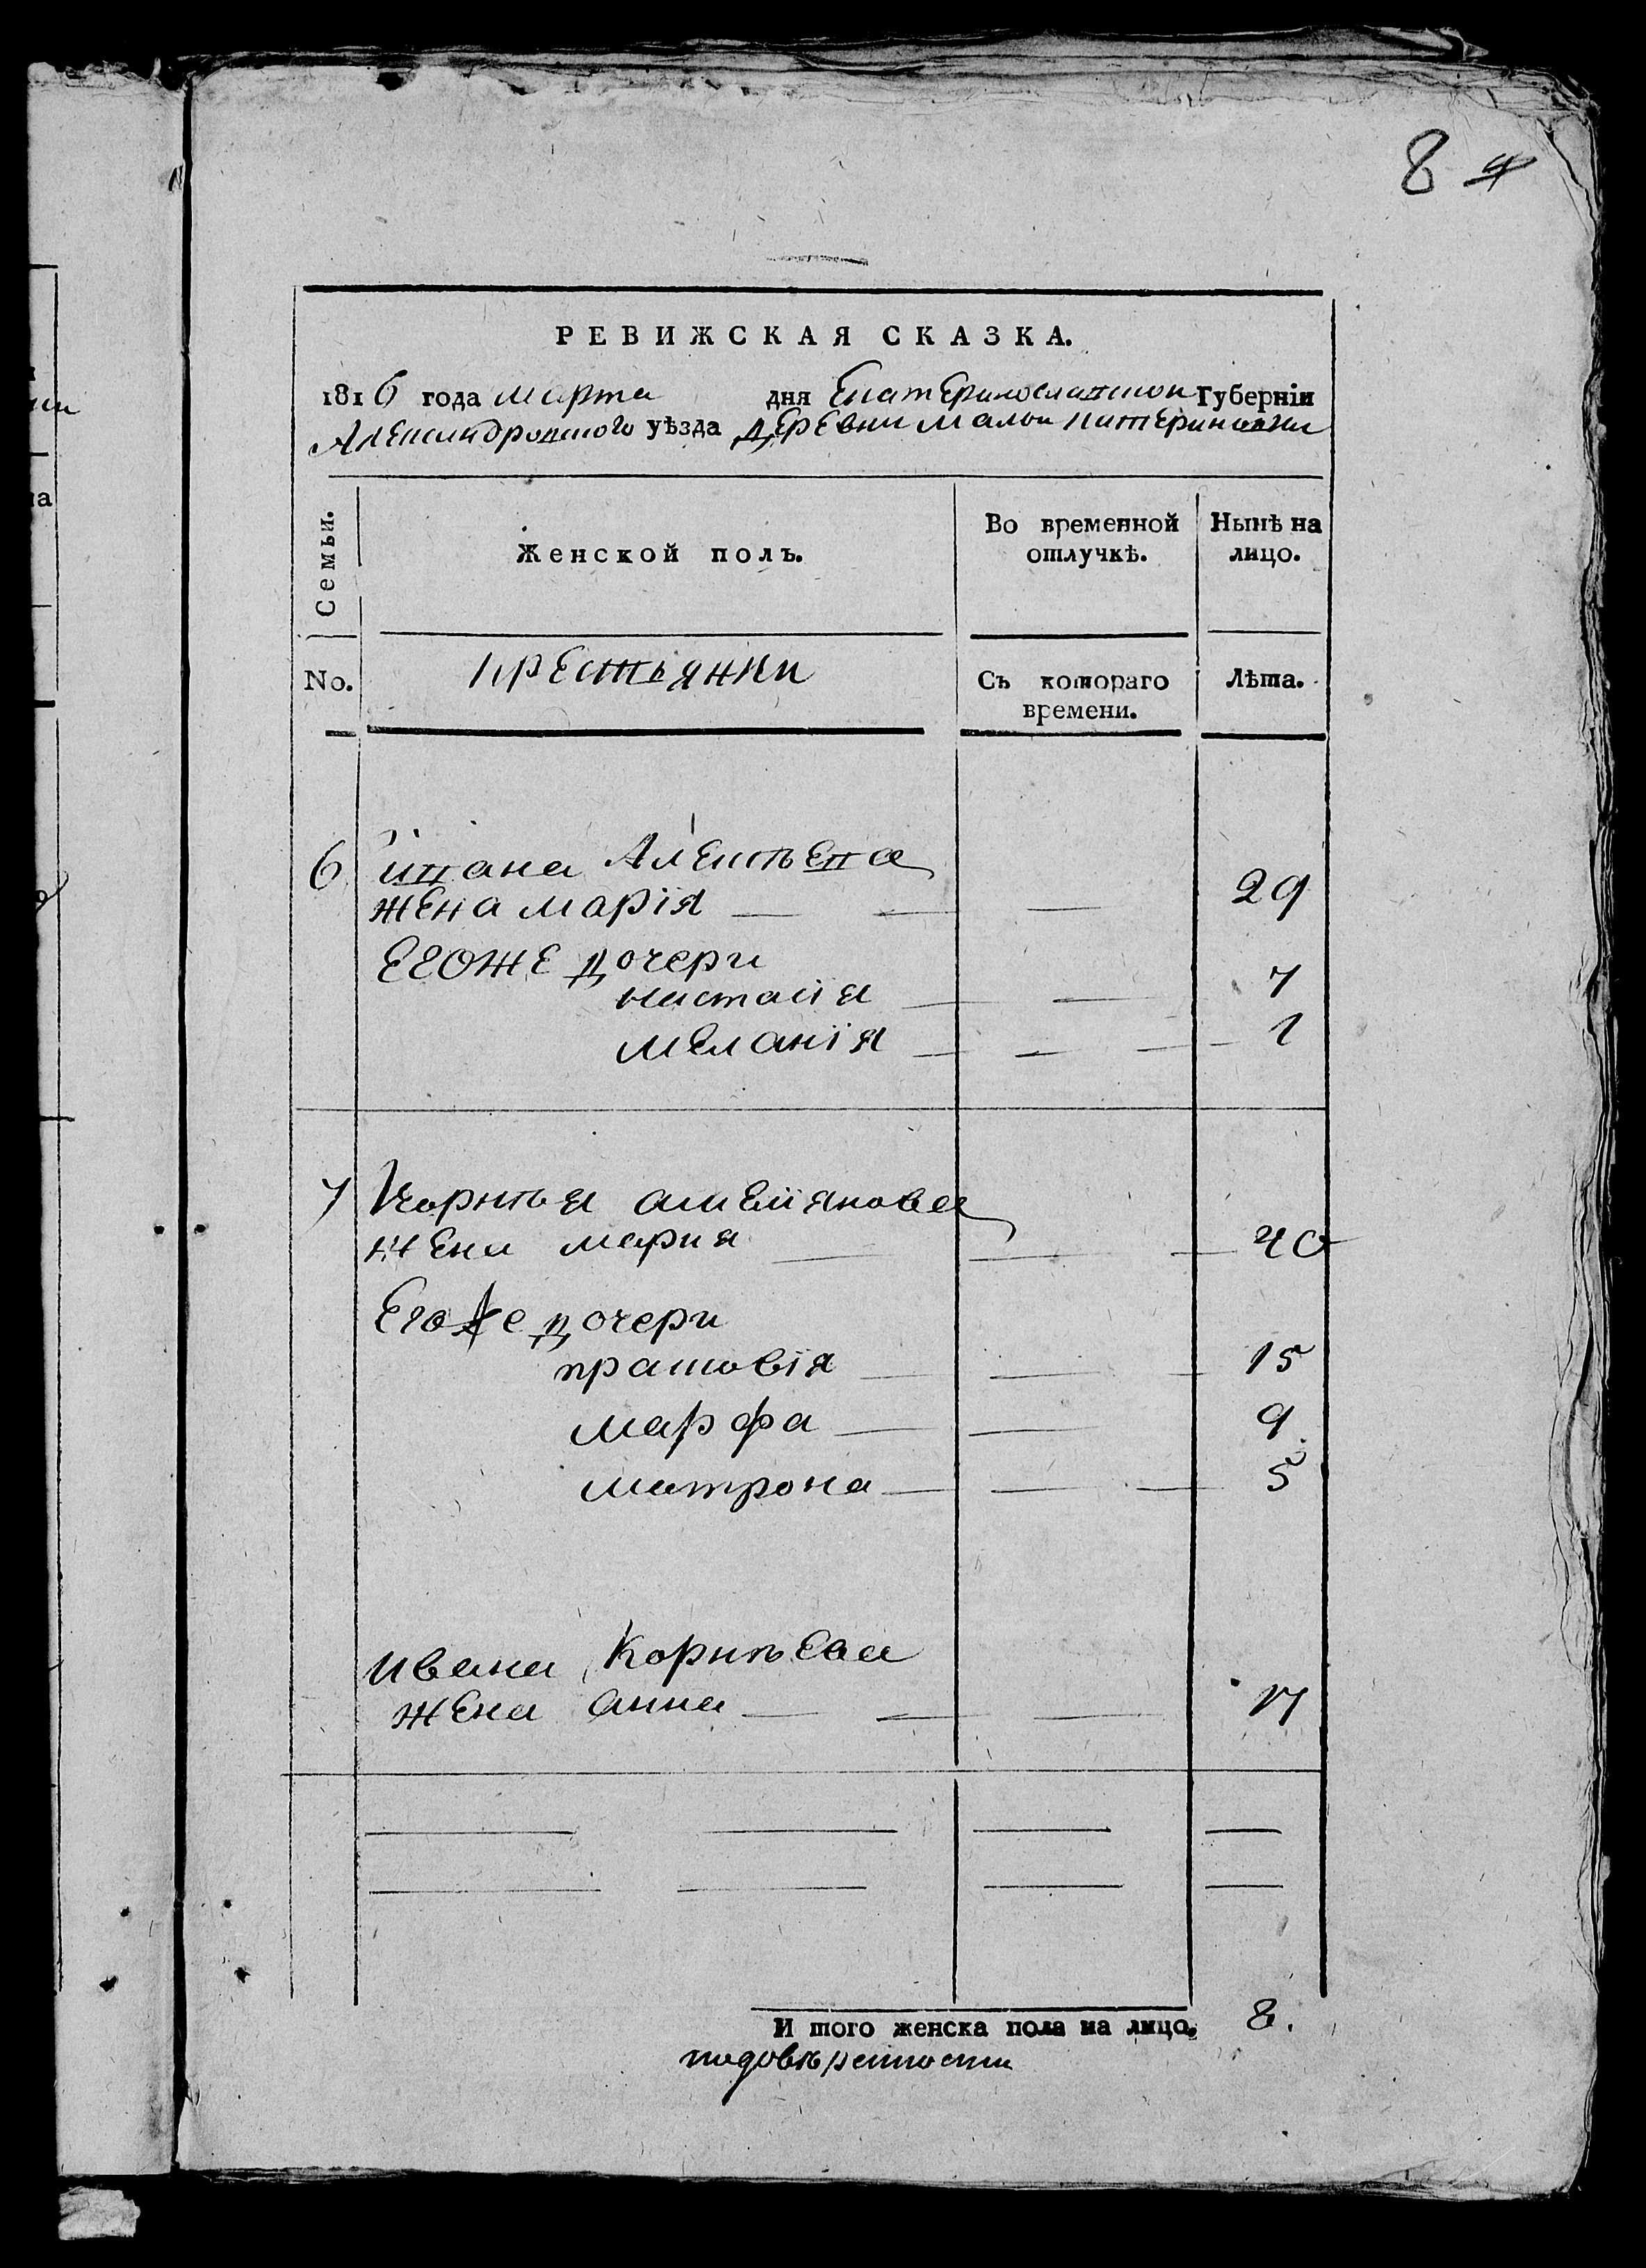 8
РЕВИЖСКАЯ СКАЗКА.
1816 года марта дня Екатеринославской Губернїи
Александровского уѣзда деревни малой катериновки
Семьи.
Женской полъ.
Во временной отлучкѣ.
Нынѣ на лицо.
No.
крестьянки
Съ котораго времени.
Лѣта.
6 ивана Алексѣева
жена марїя — — — 29
Егоже дочери
настасїя — — 7
меланїя — — — 1
7 Корнѣя амелїянова
жена мария — — — 40
Егоже дочери
прасковїя — — — 15
марфа — — 9
матрона — — — 5
ивана Корнѣева
жена анна — — — 17
И того женска пола на лицо. 8.